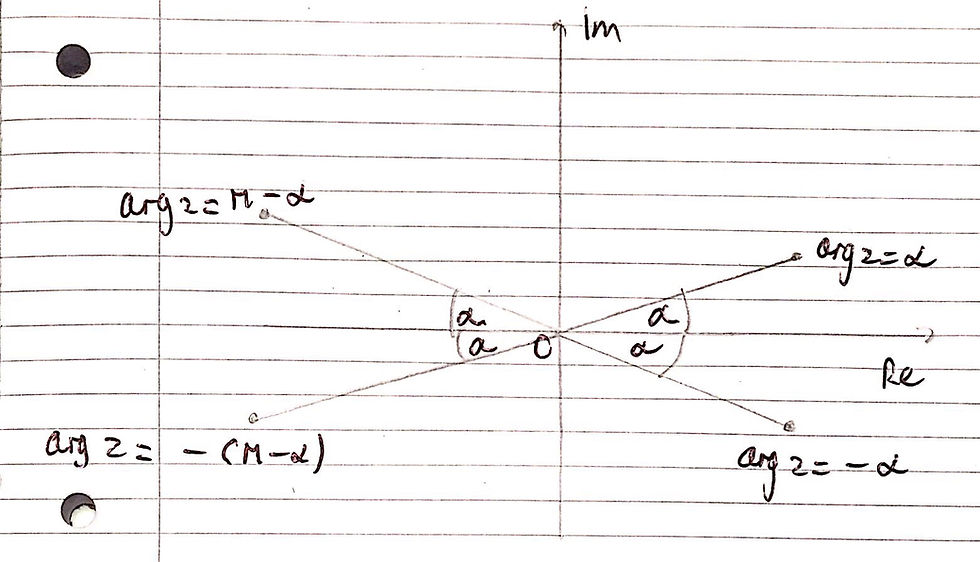 Im
arg z = π - α
arg z = α
α
α
α
α
O
Re
arg z = - (π - α)
arg z = - α